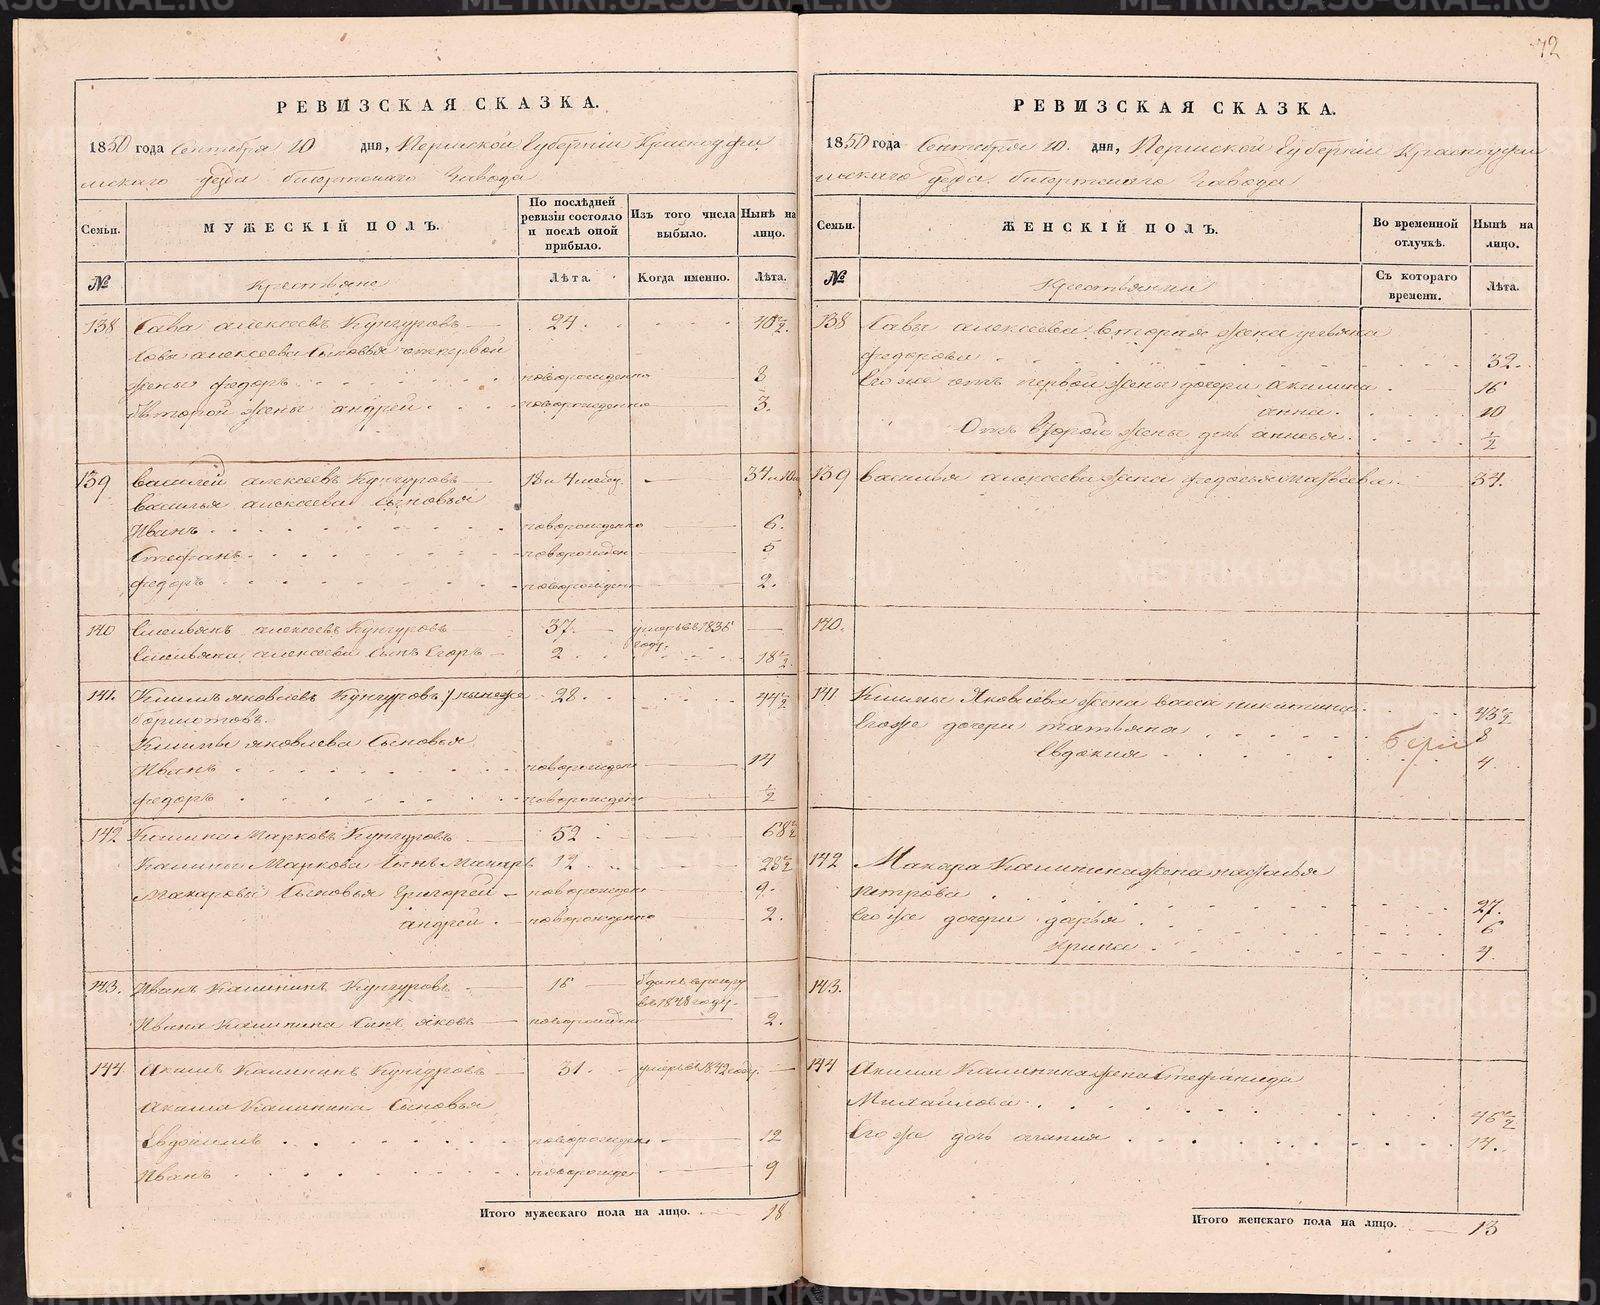 72
РЕВИЗСКАЯ СКАЗКА.
1850 года Сентября 10 дня, Пермской Губерніи Красноуфи
мскаго уезда бисертскаго завода
Семьи. МУЖЕСКІЙ ПОЛЪ. По послѣдней ревизіи состояло и послѣ оной прибыло. Изъ того числа выбыло. Нынѣ на лицо.
№ Крестьяне Лѣта. Когда именно. Лѣта.
138 Сава алексеевъ Кунгуровъ 24. 40 1/2.
Савы алексеева Сыновья отпервой
жены федоръ новорожденно 8
отвторой жены андрей новорожденно 3.
139 василей алексеевъ Кунгуровъ 34
василья алексеева Сыновья
Иванъ новорожденно 6.
Стефанъ новорожден 5
федоръ новорожденно 2.
140 Емельянъ алексеевъ Кунгуровъ 37. умеръ в 1836 году.
Емельяна алексеева Сынъ Егоръ 2 18 1/2
141. Климъ яковлевъ Кунгуровъ 28. 44 1/2
Климы яковлева Сыновья
Иванъ новорожден 14
федоръ новорожден 1/2
142 Калина Марковъ Кунгуровъ 52 68 1/2
Калины Маркова Сынъ Макаръ 12 28 1/2
Макаровы Сыновья Григорей новорожден 9.
андрей новорожденно 2.
143. Иванъ Калининъ Кунгуровъ 16 отданъ в рекру в 1848 году.
Ивана Калинина Сынъ яковъ новорожден 2.
144 Акимъ Калининъ Кунгуровъ 31. умеръ в 1842 году.
Акима Калинина Сыновья
Евдокимъ новорожден 12
Иванъ новорожден 9
Итого мужескаго пола на лицо. 18
РЕВИЗСКАЯ СКАЗКА.
1850 года Сентября 10. дня, Пермской Губерніи Красноуфи
мскаго уезда бисертскаго завода
Семьи. ЖЕНСКІЙ ПОЛЪ. Во временной отлучкѣ. Нынѣ на лицо.
№ Крестьянки Съ котораго времени. Лѣта.
138 Савы алексеева вторая жена
федорова 32.
Его же отъ первой жены дочери акилина 16
анна. 10
Отъ второй жены дочь 1/2
139 василья алексеева жена федосья 34.
140.
141 Климы Яковлева жена васса никитина 43 1/2
Его же дочери татьяна 8
Евдокия 4
142 Макара Калинина жена наталья
петрова 27.
Его же дочери дарья 6
Ирина 4.
143.
144 Акима Калинина жена Стефанида
Михайлова 46 1/2
Его же дочь агапия 14.
Итого женскаго пола на лицо. 13